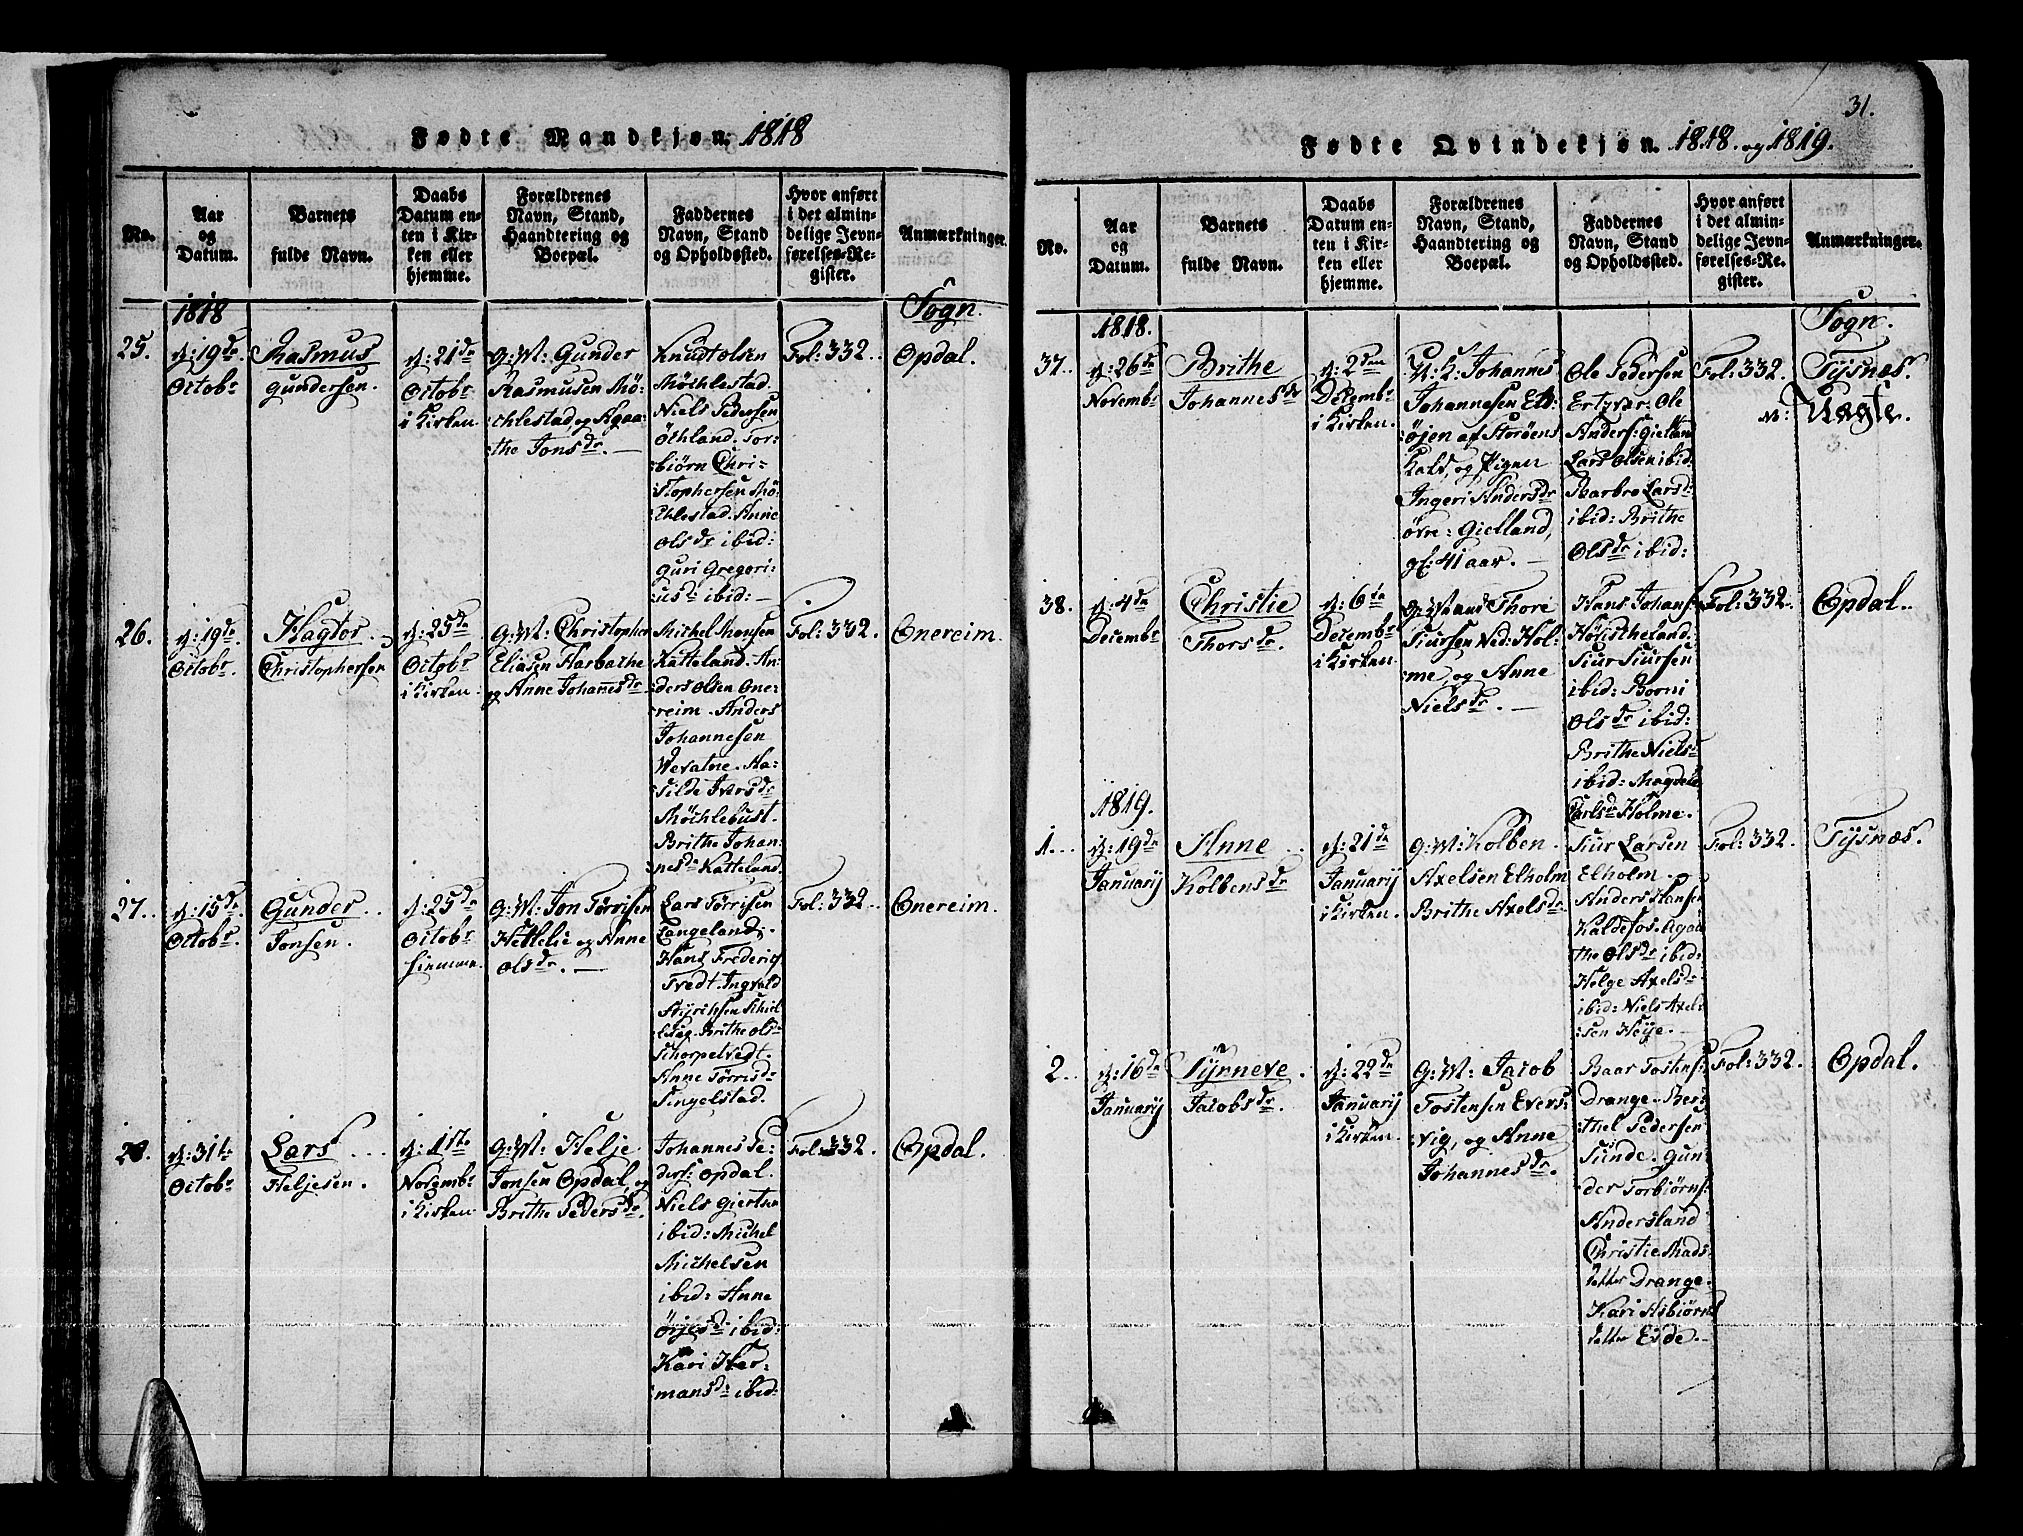 Fødte Mandkjøn. 1818
No.
Aar
og
Datum.
Barnets
fulde Navn.
Daabs
Datum en-
ten i Kir-
ken eller
hjemme.
Forældrenes
Navn, Stand,
Haandtering og
Boepæl.
Faddernes
Navn, Stand
og Opholdssted.
Hvor anført
i det almin-
delige Jevn-
førelses-Re-
gister.
Anmærkninger.
1818
Sogn.
25.
d: 19de
Octobr
Rasmus
Gundersen.
d: 21de
Octobr
i Kirken.
G: M: Gunder
Rasmusen Mø-
:chlestad, og Agaa-
the Jonsdr. —
Knudt Olsen
Møchlestad.
Niels Pedersen
Öchland. Tor-
:biørn Chri-
:stophersen Mø-
:chlestad. Anne
Olsdr ibid:
Guri Gregori-
:usd: ibid: —
Fol: 332.
Opdal.
26.
d: 19de
Octobr.
Hagtor
Christophersen
d: 25de
Octobr
i Kirken.
G: M: Christopher
Eliasen Harbathe
og Anne Johannesdr
Michel Monsen
Katteland. An-
:ders Olsen One-
:reim. Anders
Johannesen
Wevatne. Aa-
:silde Iversdr
Møchlebust.
Brithe Johan-
:nesdr Katteland.
Fol: 332.
Onereim.
27.
d: 15de
Octobr.
Gunder
Jonsen.
d: 25de
Octobr
hiemme.
G: M: Jon Tørrisen
Hettelie og Anne
Olsdr. —
Lars Tørrisen
Langeland.
Hans Frederic
Tvedt. Ingvold
Brithe Ols-
Schorpetvedt.
Anne Tørrisdr
Singelstad.
Fol: 332.
Onereim.
28.
d: 31te
Octobr
Lars
Heljesen.
d: 1ste
Novembr
i Kirken.
G: M: Helje
Jonsen Opdal, og
Brithe Pedersdr.
Johannes Pe-
:ders: Opdal.
Niels Giertsen
ibid: Michel
Michelsen
ibid: Anne
Örjesd: ibid:
Kari Her-
:mansd: ibid:
Fol: 332.
Opdal.
31.
Fødte Qvindekjøn. 1818. og 1819.
No.
Aar
og
Datum.
Barnets
fulde Navn.
Daabs
Datum en-
ten i Kir-
ken eller
hjemme.
Forældrenes
Navn, Stand,
Haandtering og
Boepæl.
Faddernes
Navn, Stand
og Opholdssted.
Hvor anført
i det almin-
delige Jevn-
førelses-Re-
gister.
Anmærkninger.
1818.
Sogn.
37.
d: 26de
Novembr
Brithe
Johannesdr
d: 2den
Decembr
i Kirken.
U: K: Johannes
Johannesen Eld-
:øjen af Storöens
Kald, og Pigen
Ingeri Andersdr
øvre: Gielland,
gl: 41 aar. —
Ole Pedersen
Ertzvær: Ole
Anders: Gielland
Lars Olsen ibid:
Barbro Larsd:
ibid: Brithe
Olsdr ibid:
Fol: 332.
Tysnæs.
N: Uægte.
38.
d: 4de
Decembr
Christie
Thorsdr.
d: 6te
Decembr
i Kirken.
G: Mand Thore
Siursen Ned: Hol-
:me, og Anne
Nielsdr. —
Hans Johans:
Siur Siursen
ibid: Borni
Olsdr ibid:
Brithe Nielsd:
ibid: Magdele
Carlsd: Holme.
Fol: 332.
Opdal.
1819.
1.
d: 19de
Januarij
Anne
Kolbensdr
d: 21de
Januarij
i Kirken.
G: M: Kolben
Axelsen Elholm
Brithe Axelsdr.
Siur Larsen
Elholm. og
Anders Hansen
Kaldefos. Agaa
the Olsdr ibid:
Helge Axelsd:
ibid: Niels Axel-
:sen Høye. —
Fol: 332.
Tysnæs.
2.
d: 16de
Januarij
Synneve.
Jacobsdr.
d: 22de
Januarij
i Kirken.
G: M: Jacob
Tostensen Evers-
:vig, og Anne
Johannesdr.
Baar Tostens:
Drange. Ber-
:thel Pedersen
Sunde. Gun-
:der Torbiørns:
Andersland
Christie Mads-
datter Drange.
Kari Asbiørns
datter Eide. —
Fol: 332.
Opdal.